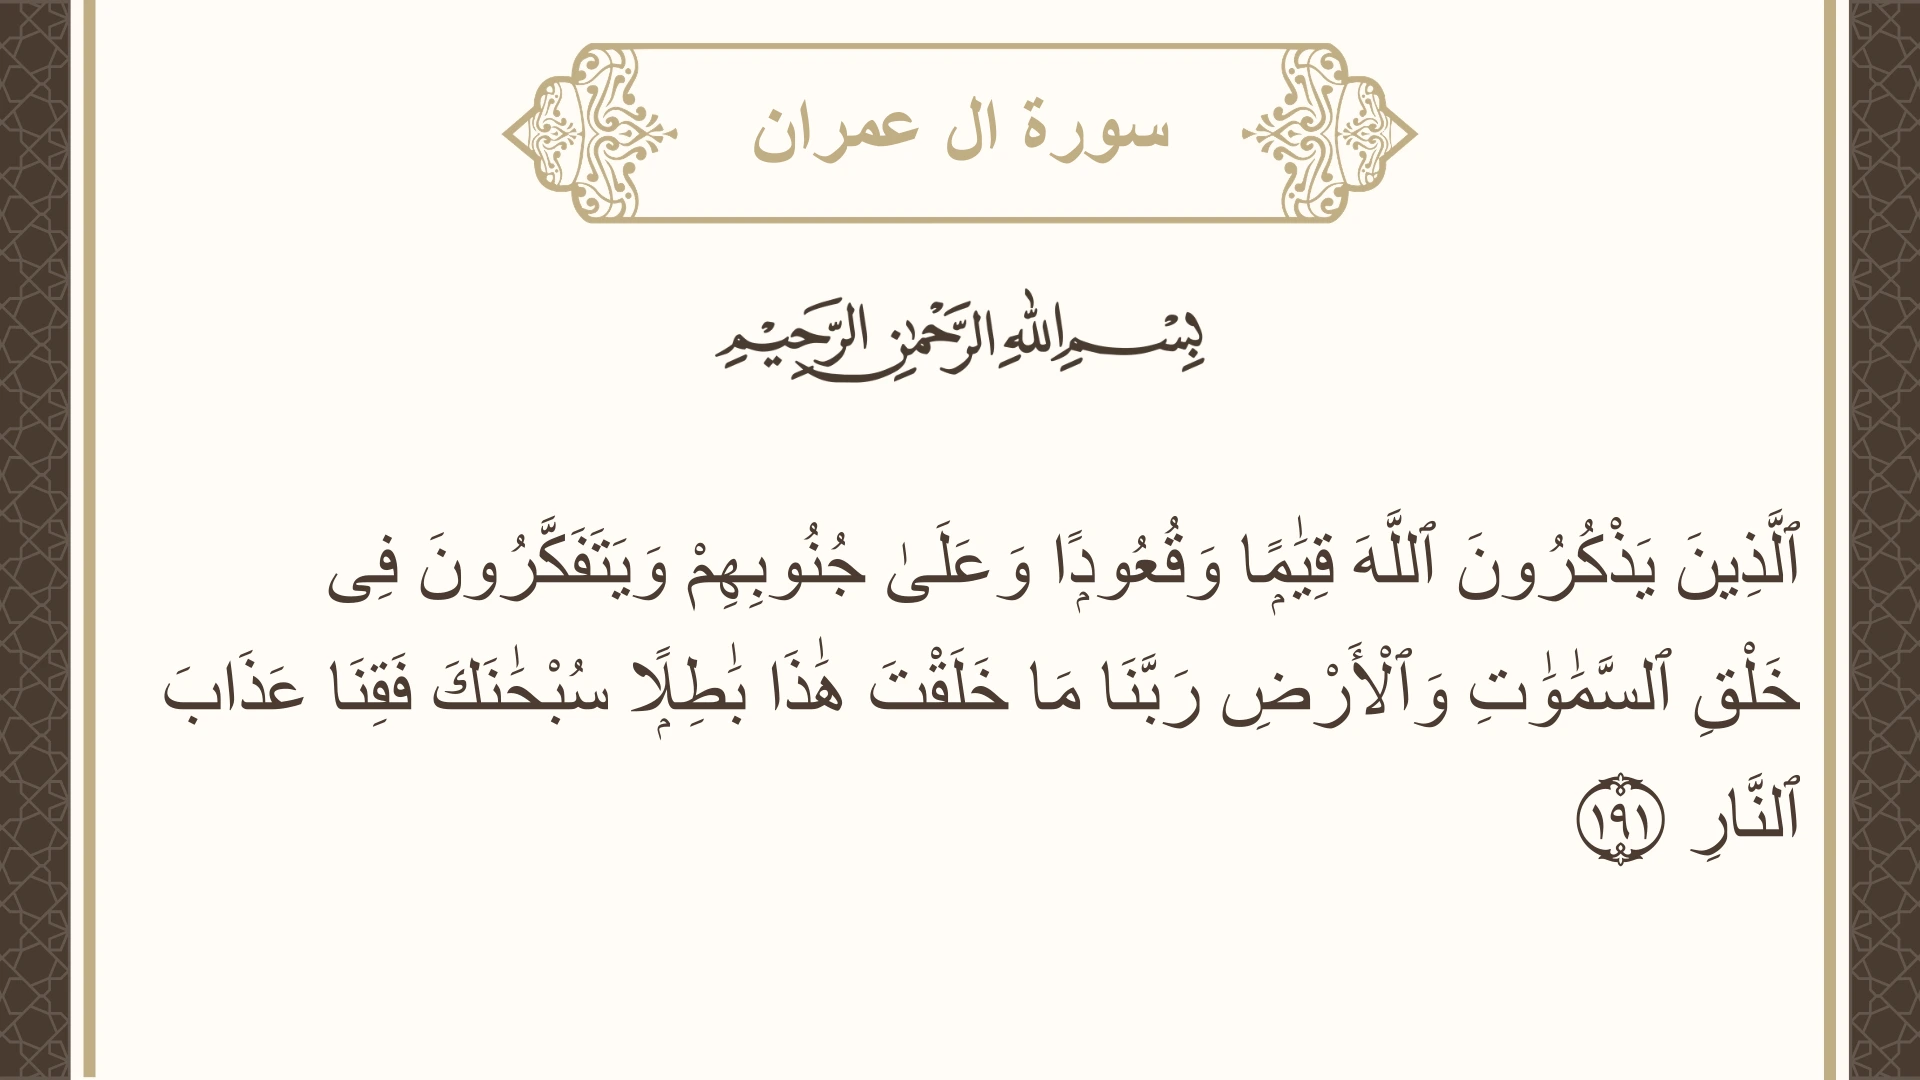 سورة ال عمران
بِسْمِ اللهِ الرَّحْمٰنِ الرَّحِيْمِ
ٱلَّذِينَ يَذْكُرُونَ ٱللَّهَ قِيَٰمًۭا وَقُعُودًۭا وَعَلَىٰ جُنُوبِهِمْ وَيَتَفَكَّرُونَ فِى
خَلْقِ ٱلسَّمَٰوَٰتِ وَٱلْأَرْضِ رَبَّنَا مَا خَلَقْتَ هَٰذَا بَٰطِلًۭا سُبْحَٰنَكَ فَقِنَا عَذَابَ
ٱلنَّارِ ١٩١